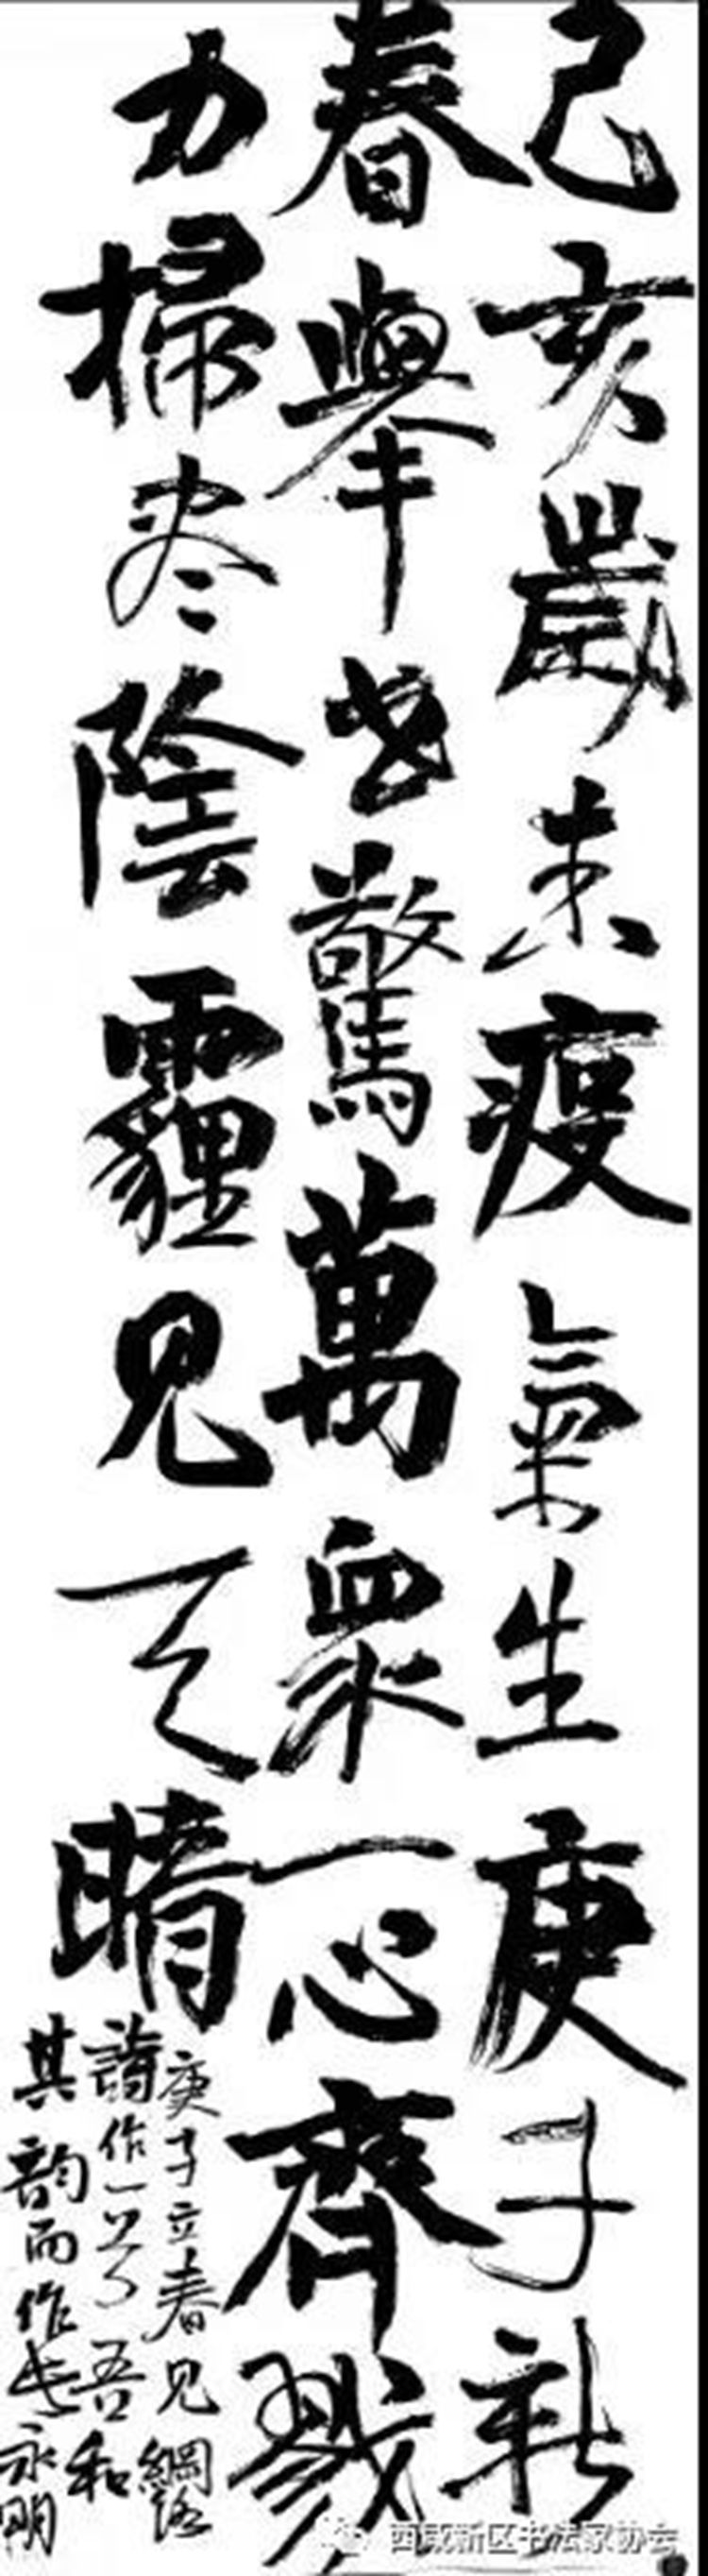 己亥歲末疫氣生庚子新
春舉世驚萬衆一心齊戮
力掃尽陰霾见天晴
庚子立春见網絡
詩作一吾和
其韵而作永明
西咸新区书法家协会